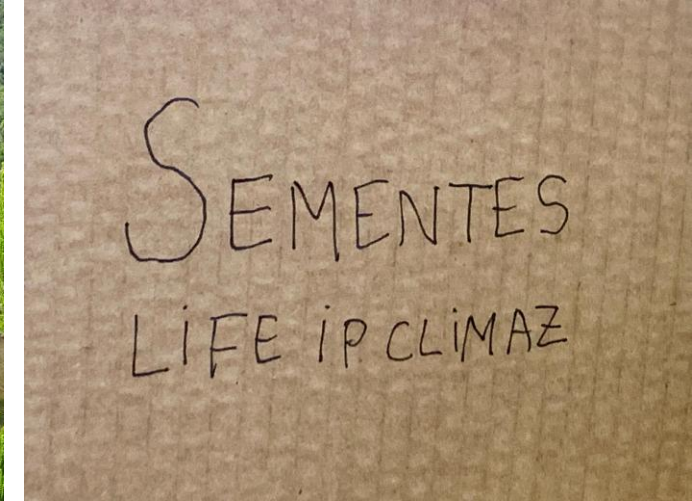 SEMENTES
LiFE iP CLiMAZ